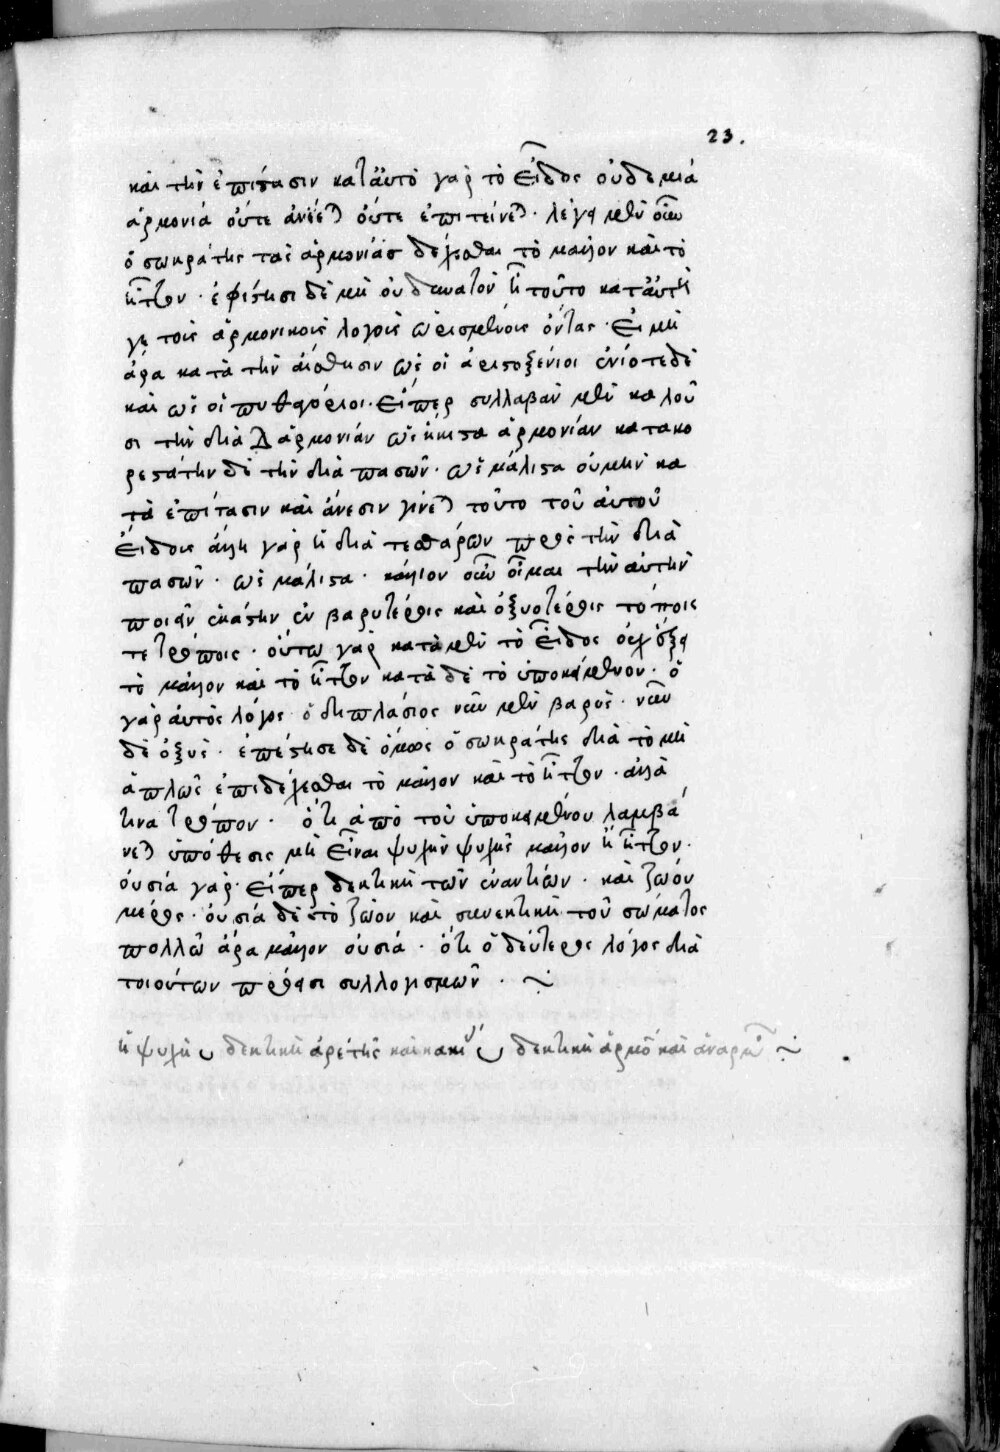 23.
καὶ τὴν ἐπίτασιν κατ' αὐτὸ γὰρ τὸ εἶδος οὐδεμιά
ἁρμονία οὔτε ἀνίεται οὔτε ἐπιτείνεται. λέγει μὲν οὖν
ὁ σωκράτης τὰς ἁρμονίας δέχεσθαι τὸ μᾶλλον καὶ τὸ
ἧττον. ἐφίστησι δὲ μὴ οὐ δυνατὸν ἦ τοῦτο κατ' αὐτή
γε τοῖς ἁρμονικοῖς λόγοις ὡρισμένοις ὄντας. εἰ μὴ
ἄρα κατὰ τὴν αἴσθησιν ὡς οἱ ἀριστοξένιοι ἐνίοτε δὲ
καὶ ὡς οἱ πυθαγόριοι. εἴπερ συλλαβὰν μὲν καλοῦ
σι τὴν διὰ Δ ἁρμονίαν ὡς ἥκιστα ἁρμονίαν κατακο
ρεστάτην δὲ τὴν διὰ πασῶν. ὡς μάλιστα οὐ μὴν κα
τὰ ἐπίτασιν καὶ ἄνεσιν γίνεται τοῦτο τοῦ αὐτοῦ
εἴδους ἄλλη γὰρ ἡ διὰ τεσσάρων πρὸς τὴν διὰ
πασῶν. ὡς μάλιστα. κάλλιον οὖν οἶμαι τὴν αὐτὴν
ποιεῖν ἑκάστην ἐν βαρυτέροις καὶ ὀξυοτέροις τόποις
τε τρόποις. οὕτω γὰρ κατὰ μὲν τὸ εἶδος
τὸ μᾶλλον καὶ τὸ ἧττον κατὰ δὲ τὸ ὑποκείμενον. ὁ
γὰρ αὐτὸς λόγος ὁ διπλάσιος νῦν μὲν βαρύς. νῦν
δὲ ὀξύς. ἐπέστησε δὲ ὅμως ὁ σωκράτης διὰ τὸ μὴ
ἁπλῶς ἐπιδέχεσθαι τὸ μᾶλλον καὶ τὸ ἧττον. ἀλλὰ
τινα τρόπον. ὅτι ἀπὸ τοῦ ὑποκειμένου λαμβά
νεται ὑπόθεσις μὴ εἶναι ψυχὴν ψυχῆς μᾶλλον ἢ ἧττον.
οὐσία γάρ. εἴπερ δεκτικὴ τῶν ἐναντίων. καὶ ζώου
μέρος. οὐσία δὲ τὸ ζῶον καὶ συνεκτικὴ τοῦ σώματος
πολλῶ ἄρα μᾶλλον οὐσία. ὅτι ὁ δεύτερος λόγος διὰ
τοιούτων πρόεισι συλλογισμῶν.
ἡ ψυχὴ δεκτικὴ ἀρετῆς καὶ κακί δεκτικὴ ἁρμο καὶ ἀναρμ